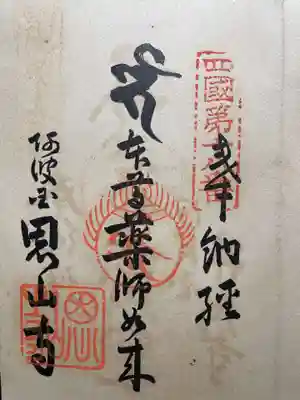 奉納経
四國第十八番
本尊薬師如来
阿波国
恩山寺